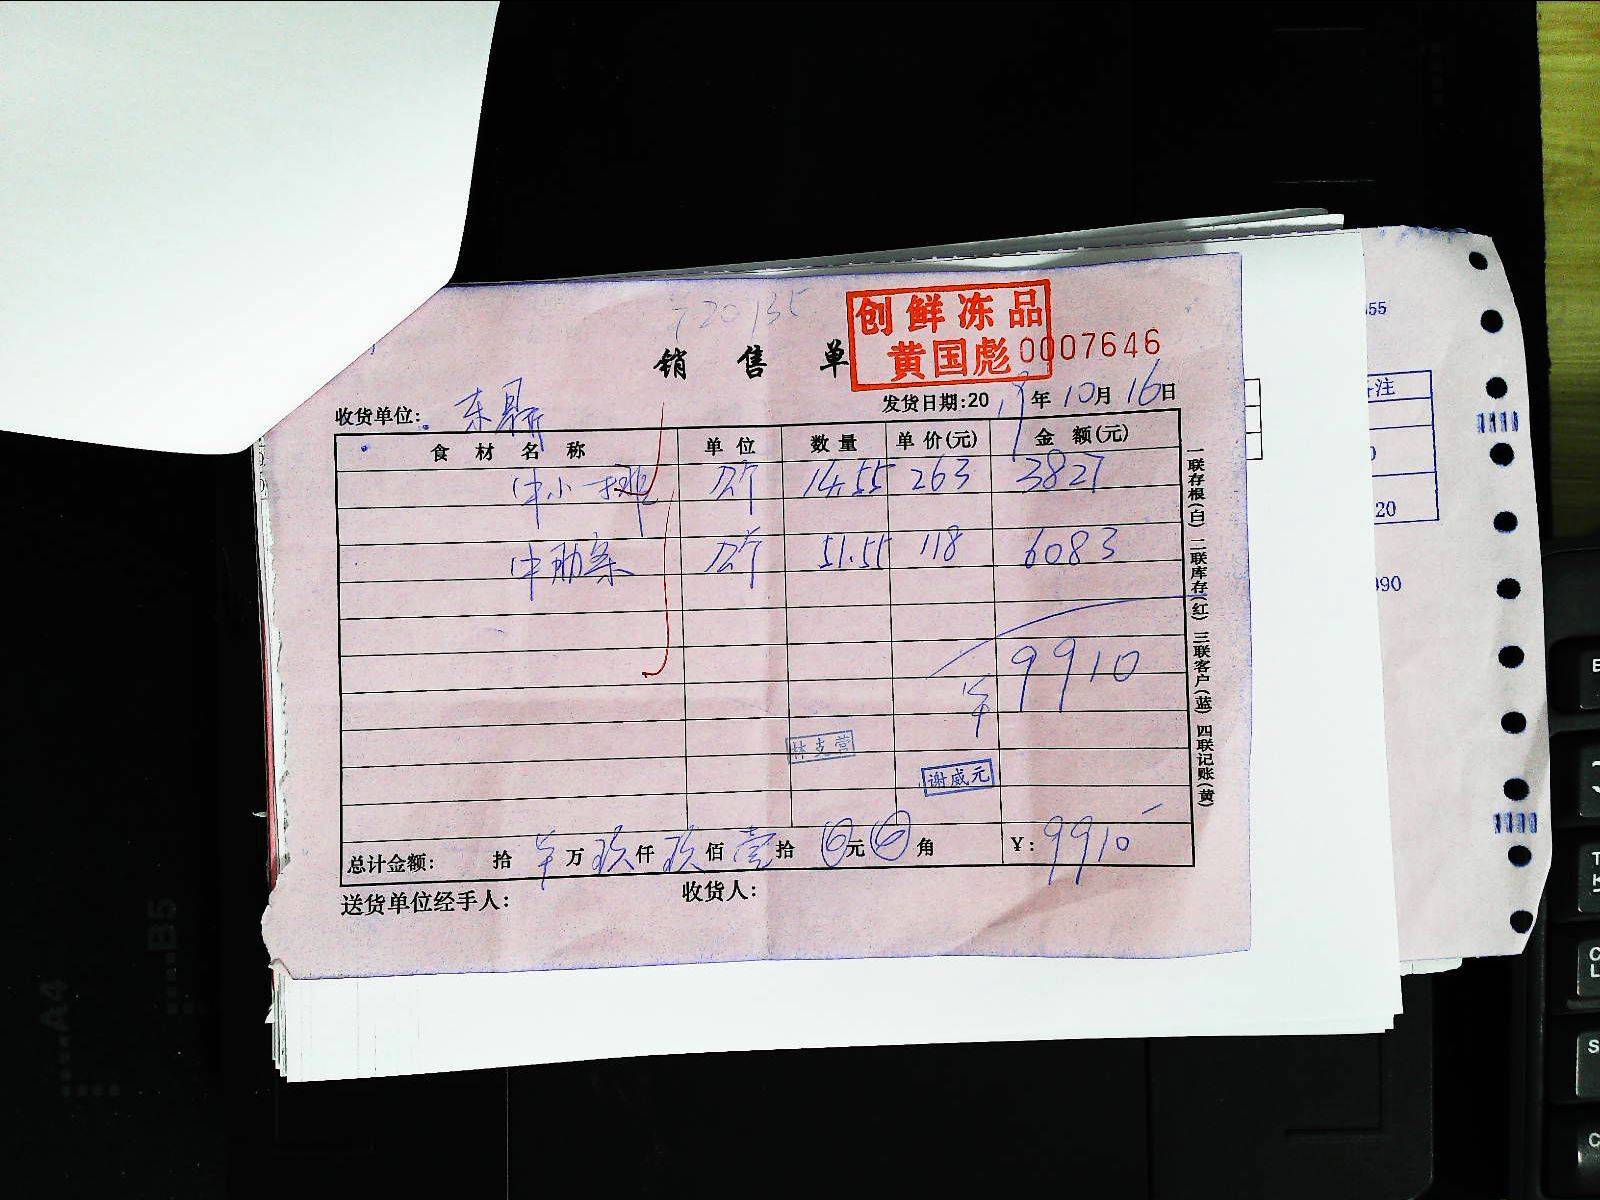 创鲜冻品
黄国彪
销售单
0007646
收货单位:
发货日期:20 年10月16日
食材名称 单位 数量 单价(元) 金额(元)
牛小排 公斤 14.55 263 3827
牛肋条 公斤 51.55 118 6083
9910
林克营
谢威元
总计金额: 拾 万玖仟玖佰壹拾 元 角 ¥:9910
送货单位经手人: 收货人:
一联存根(白) 二联库存(红) 三联客户(蓝) 四联记账(黄)
55
注
20
990
A4
B5